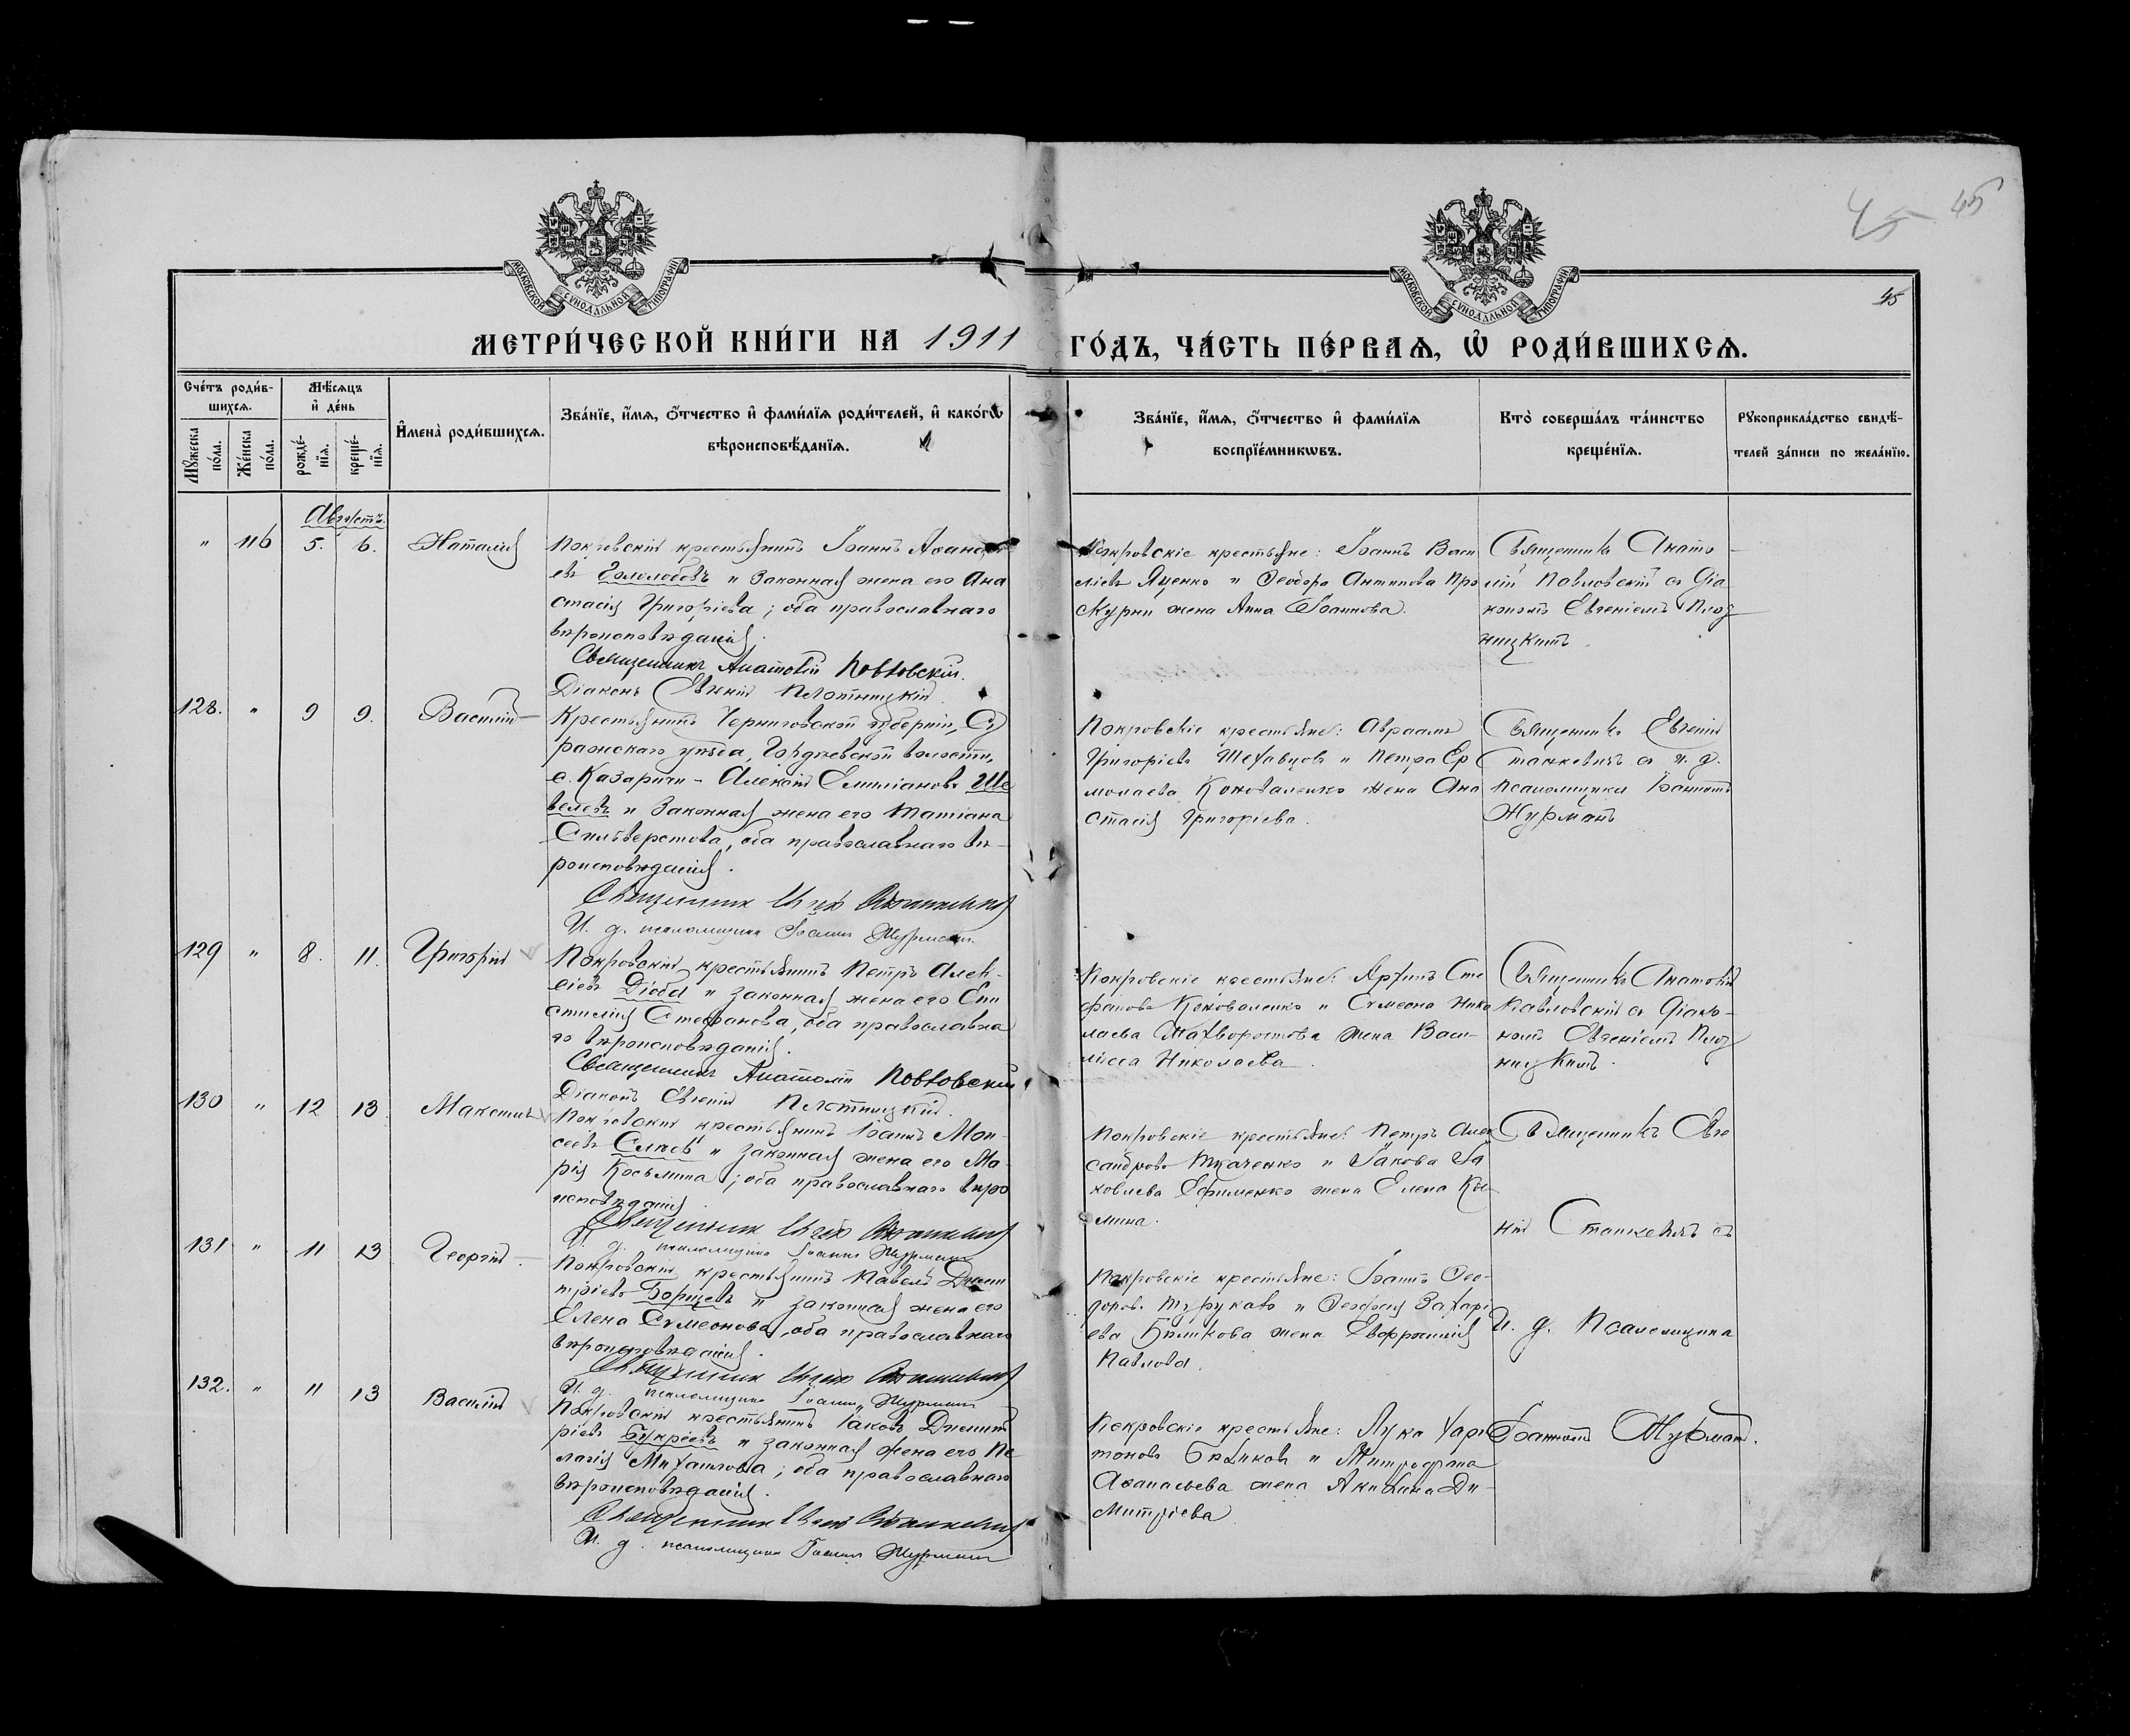 45 45
45
МОСКОВСКОЙ СѴНОДАЛЬНОЙ ТИПОГРАФІИ
МОСКОВСКОЙ СѴНОДАЛЬНОЙ ТИПОГРАФІИ
МЕТРИ́ЧЕСКОЙ КНИ́ГИ НА 1911 ГО́ДЪ, ЧА́СТЬ ПЕ́РВАѦ, Ѡ҆ РОДИ́ВШИХСѦ.
Сче́тъ роди́в-
шихсѧ.
Мꙋ́жеска по́ла.
Же́нска по́ла.
Мѣ́сѧцъ
и҆ де́нь
рожде́-
нїѧ.
креще́-
нїѧ.
И҆мена̀ роди́вшихсѧ.
Зва́нїе, и҆́мѧ, ѻ҆́тчество и҆ фами́лїѧ роди́телей, и҆ како́гѡ
вѣроисповѣ́данїѧ.
Зва́нїе, и҆́мѧ, ѻ҆́тчество и҆ фами́лїѧ
воспрїе́мникѡвъ.
Кто̀ соверша́лъ та́инство
креще́нїѧ.
Рꙋкоприкла́дство свидѣ́-
телей за́писи по жела́нїю.
Августъ
" 116 5. 6. Наталія
Покровскій крестьянинъ Іоаннъ Аѳанась
евъ Гололобовъ и законная жена его Ана
стасія Григоріева; оба православнаго
вѣроисповѣданія.
Священникъ Анатолій Павловскій.
Діаконъ Евгеній Плотницкій
Покровскіе крестьяне: Іоаннъ Васи
ліевъ Яценко и Ѳеодора Антипова Про
скурни жена Анна Іоаннова.
Священникъ Анато
лій Павловскій съ діа
кономъ Евгеніемъ Плот
ницкимъ.
128. " 9 9. Василій
Крестьянинъ Черниговской губерніи, Су
ражскаго уѣзда, Гордѣевской волости,
с. Казаричи - Алексій Емиліановъ Ше
велевъ и законная жена его Татіана
Сильверстова, оба православнаго вѣ-
роисповѣданія.
Священникъ Евгеній Станкевичъ
И. д. псаломщика Іоаннъ Журманъ
Покровскіе крестьяне: Авраамъ
Григоріевъ Шехавцовъ и Петра Ер
молаева Коноваленко жена Ана
стасія Григоріева.
Священникъ Евгеній
Станкевичъ съ и. д.
псаломщика Іоанномъ
Журманъ
129 " 8. 11. Григорій
Покровскій крестьянинъ Петръ Алек-
сіевъ Діобе и законная жена его Епи
стимія Стефанова, оба православна
го вѣроисповѣданія.
Священникъ Анатолій Павловскій
Діаконъ Евгеній Плотницкій.
Покровскіе крестьяне: Архипъ Сте
фановъ Коноваленко и Сѵмеона Нико
лаева Махворостова жена Васи-
лісса Николаева.
Священникъ Анатолій
Павловскій съ діако-
номъ Евгеніемъ Плот
ницкимъ.
130 " 12 13 Максимъ
Покровскій крестьянинъ Іоаннъ Мои-
сеевъ и законная жена его Ма-
рія Косьмина; оба православнаго вѣро
исповѣданія.
Священникъ Евгеній Станкевичъ
И. д. псаломщика Іоаннъ Журманъ
Покровскіе крестьяне: Петръ Алек
сандровъ Ткаченко и Іакова Іа
ковлева Ефименко жена Елена Кось
мина.
Священникъ Евге
ній Станкевичъ съ
131 " 11 13 Георгій
Покровскій крестьянинъ Павелъ Дими
тріевъ Борщевъ и законная жена его
Елена Сѵмеонова, оба православнаго
вѣроисповѣданія.
Священникъ Евгеній Станкевичъ
И. д. псаломщика Іоаннъ Журманъ
Покровскіе крестьяне: Іоаннъ Ѳео-
доровъ Турукало и Ѳеофана Захарі
ева жена Евфросинія
Павлова.
И. д. Псаломщика
132. " 11 13 Василій
Покровскій крестьянинъ Іаковъ Димит
ріевъ Букреевъ и законная жена его Пе
лагія Михаилова; оба православнаго
вѣроисповѣданія.
Священникъ Евгеній Станкевичъ
И. д. псаломщика Іоаннъ Журманъ
Покровскіе крестьяне: Лука Хари
тоновъ и Митрофана
Аѳанасьева жена Акилина Ди-
митріева
Іоанномъ Журманъ.